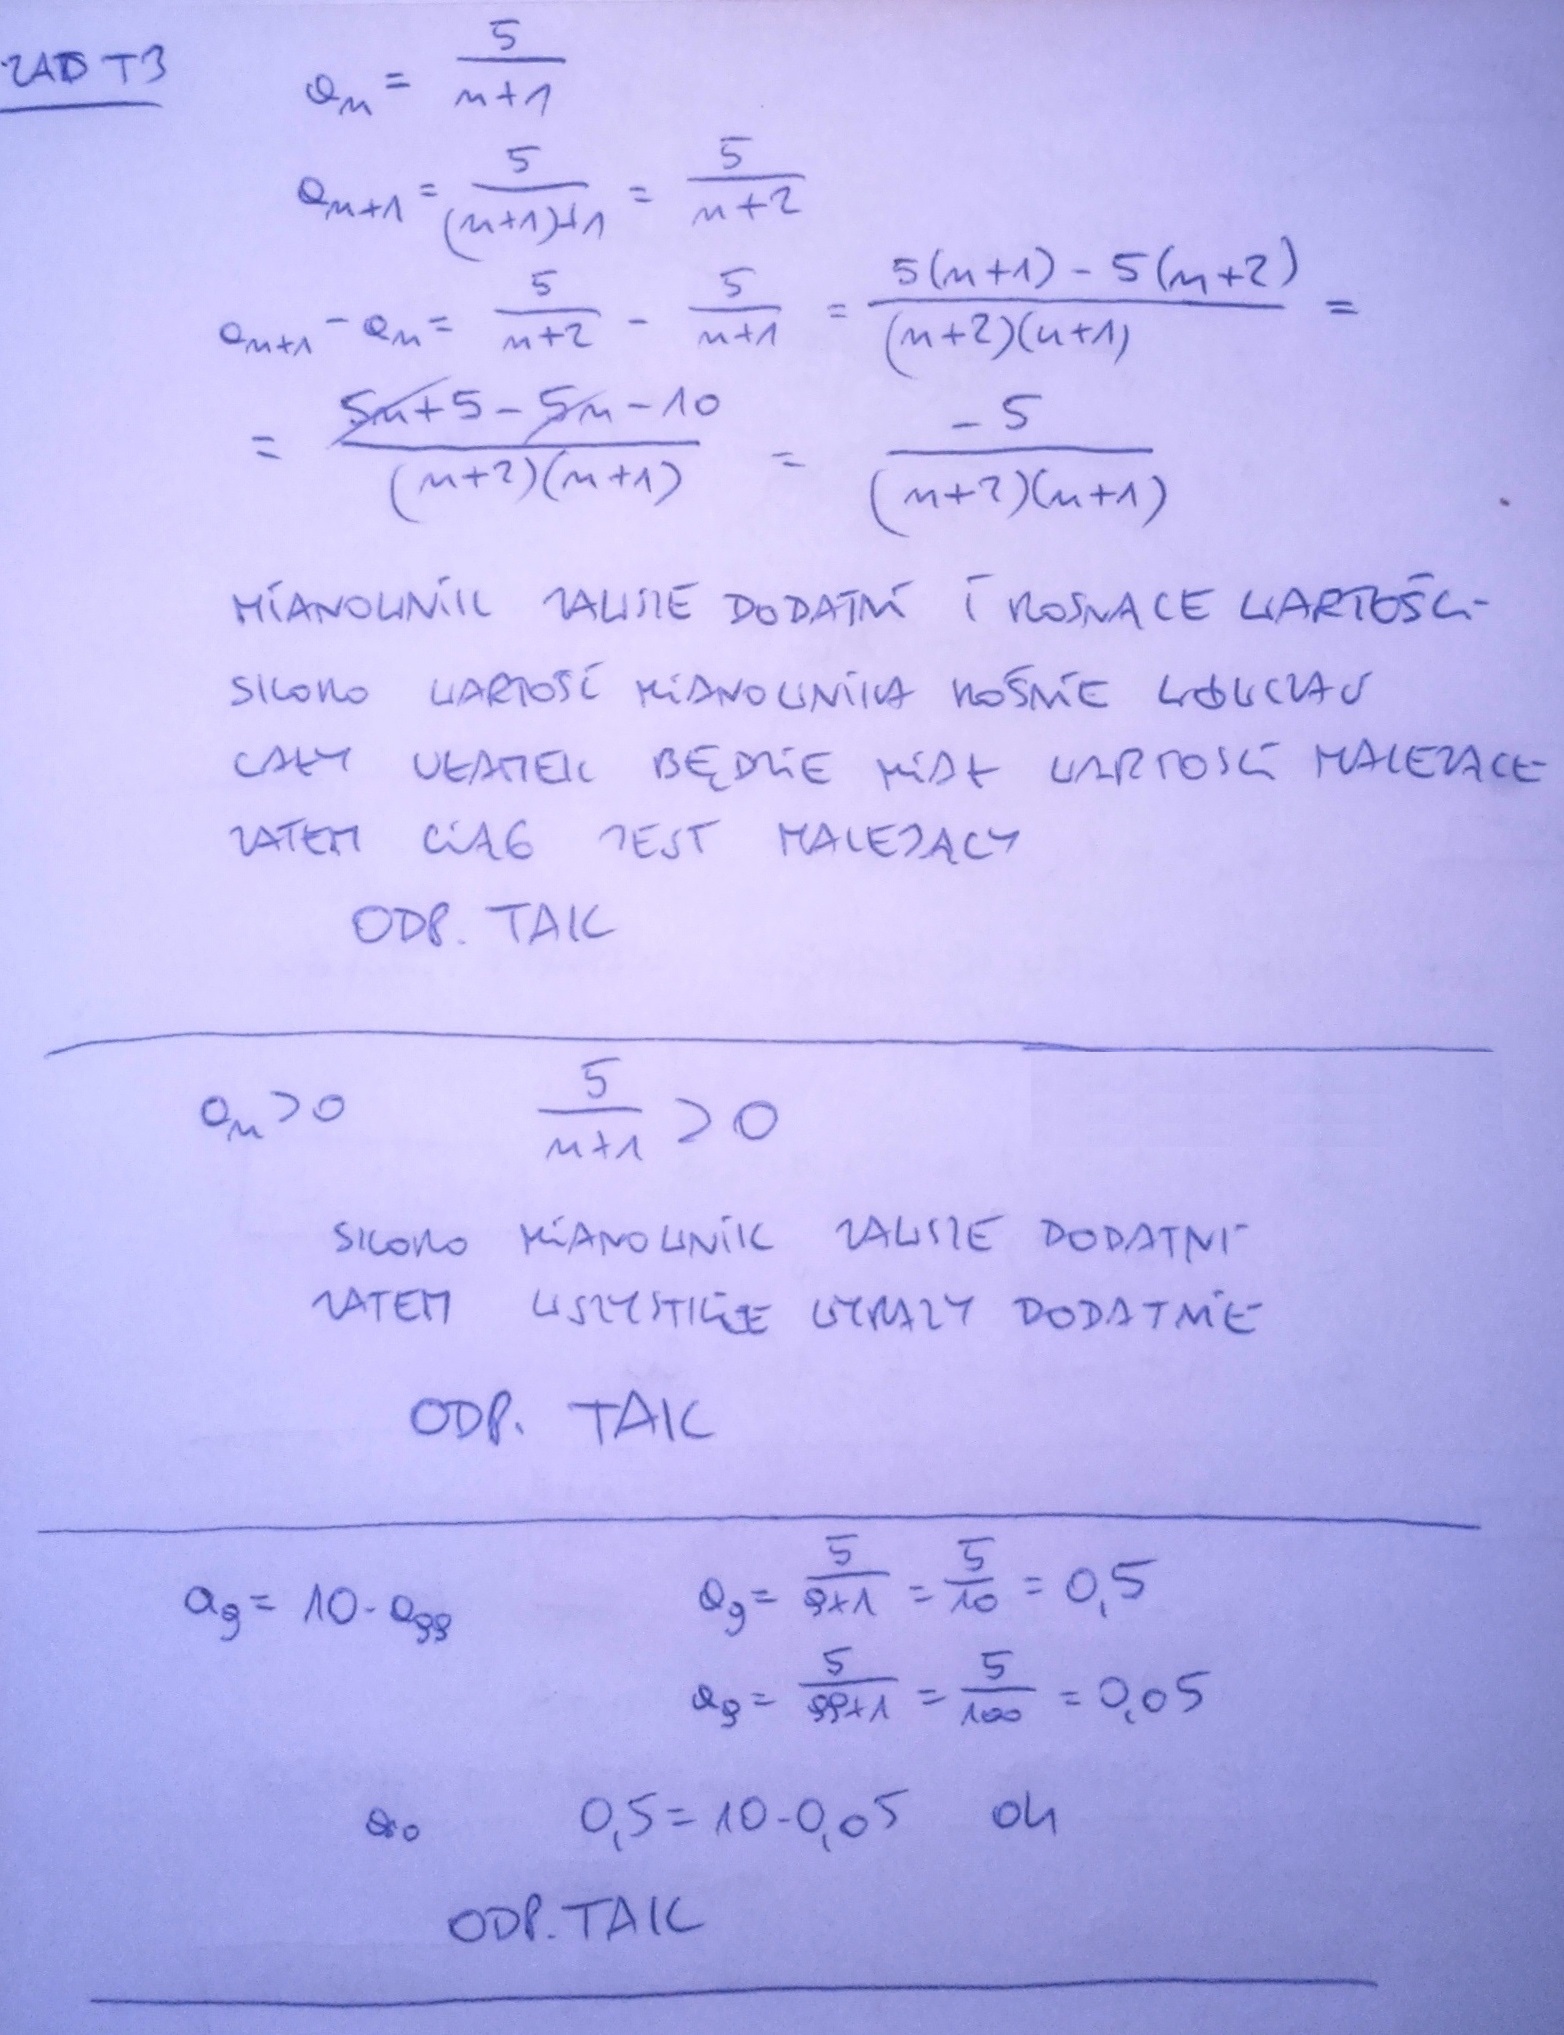 ZAD T3
a_n = 5/(n+1)
a_{n+1} = 5/((n+1)+1) = 5/(n+2)
a_{n+1} - a_n = 5/(n+2) - 5/(n+1) = (5(n+1) - 5(n+2))/((n+2)(n+1)) =
= (5n+5-5n-10)/((n+2)(n+1)) = -5/((n+2)(n+1))
MIANOWNIK ZAWSZE DODATNI I ROSNĄCE WARTOŚCI
SKORO WARTOŚĆ MIANOWNIKA ROŚNIE WÓWCZAS
CAŁY UŁAMEK BĘDZIE MIAŁ WARTOŚCI MALEJĄCE
ZATEM CIĄG JEST MALEJĄCY
ODP. TAK
a_n > 0 5/(n+1) > 0
SKORO MIANOWNIK ZAWSZE DODATNI
ZATEM WSZYSTKIE WYRAZY DODATNIE
ODP. TAK
a_9 = 10·a_99 a_9 = 5/(9+1) = 5/10 = 0,5
a_9 = 5/(99+1) = 5/100 = 0,05
0,5 = 10·0,05 ok
ODP. TAK